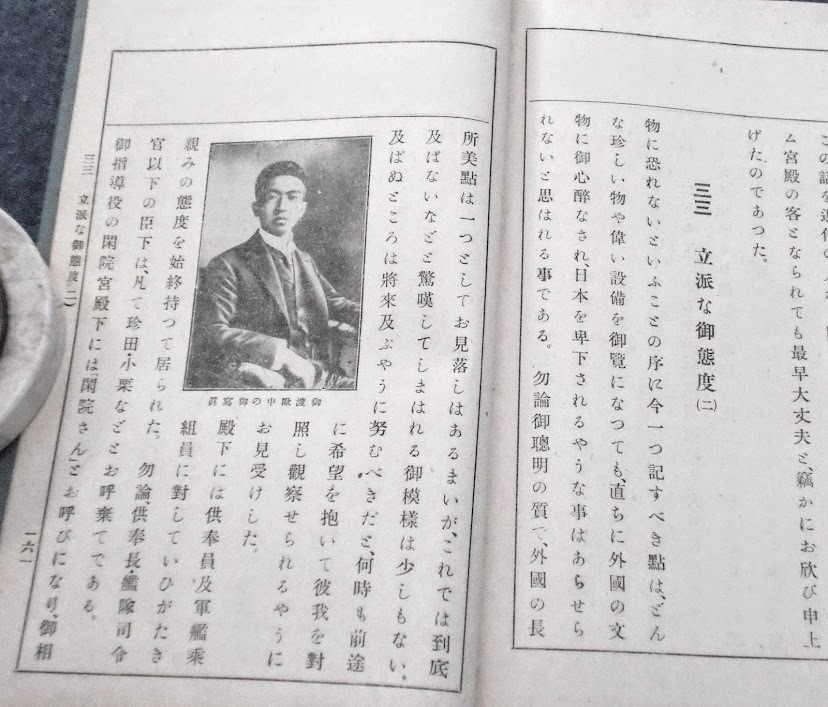 ム宮殿の客となられても最早大丈夫と、竊かにお欣び申上
げたのであつた。
三三 立派な御態度(二)
物に恐れないといふことの序に今一つ記すべき點は、どん
な珍しい物や偉い設備を御覽になつても、直ちに外國の文
物に御心醉なされ、日本を卑下されるやうな事はあらせら
れないと思はれる事である。勿論御聰明の質で、外國の長
所美點は一つとしてお見落しはあるまいが、これでは到底
及ばないなどと驚嘆してしまはれる御模樣は少しもない、
及ばぬところは將來及ぶやうに努むべきだと、何時も前途
に希望を抱いて彼我を對
照し觀察せられるやうに
お見受けした。
殿下には供奉員及軍艦乘
組員に對していひがたき
親みの態度を始終持つて居られた。勿論、供奉長・艦隊司令
官以下の臣下は、凡て珍田・小栗などとお呼棄てである。
御指導役の閑院宮殿下には「閑院さん」とお呼びになり、御相
御渡歐中の御寫眞
三三 立派な御態度(二)
一六一